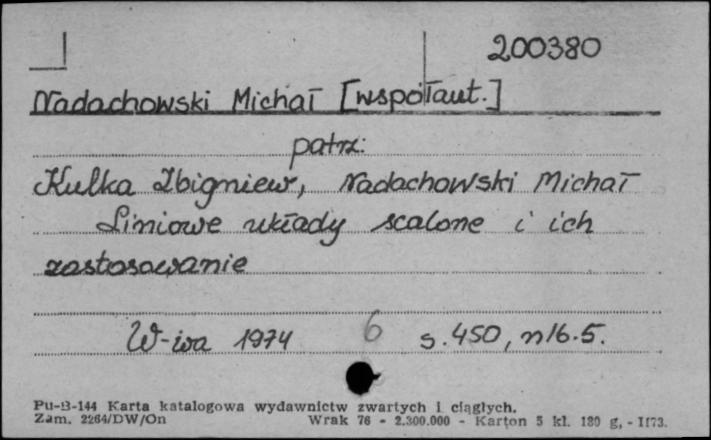 200380
Nadachowski Michał [współaut.]
patrz:
Kulka Zbigniew, Nadachowski Michał
Liniowe układy scalone i ich
zastosowanie
W-wa 1974 6 s. 450, nlb. 5.
Pu-B-144 Karta katalogowa wydawnictw zwartych i ciągłych.
Zam. 2264/DW/On Wrak 76 - 2.300.000 - Karton 5 kl. 180 g, - II73.